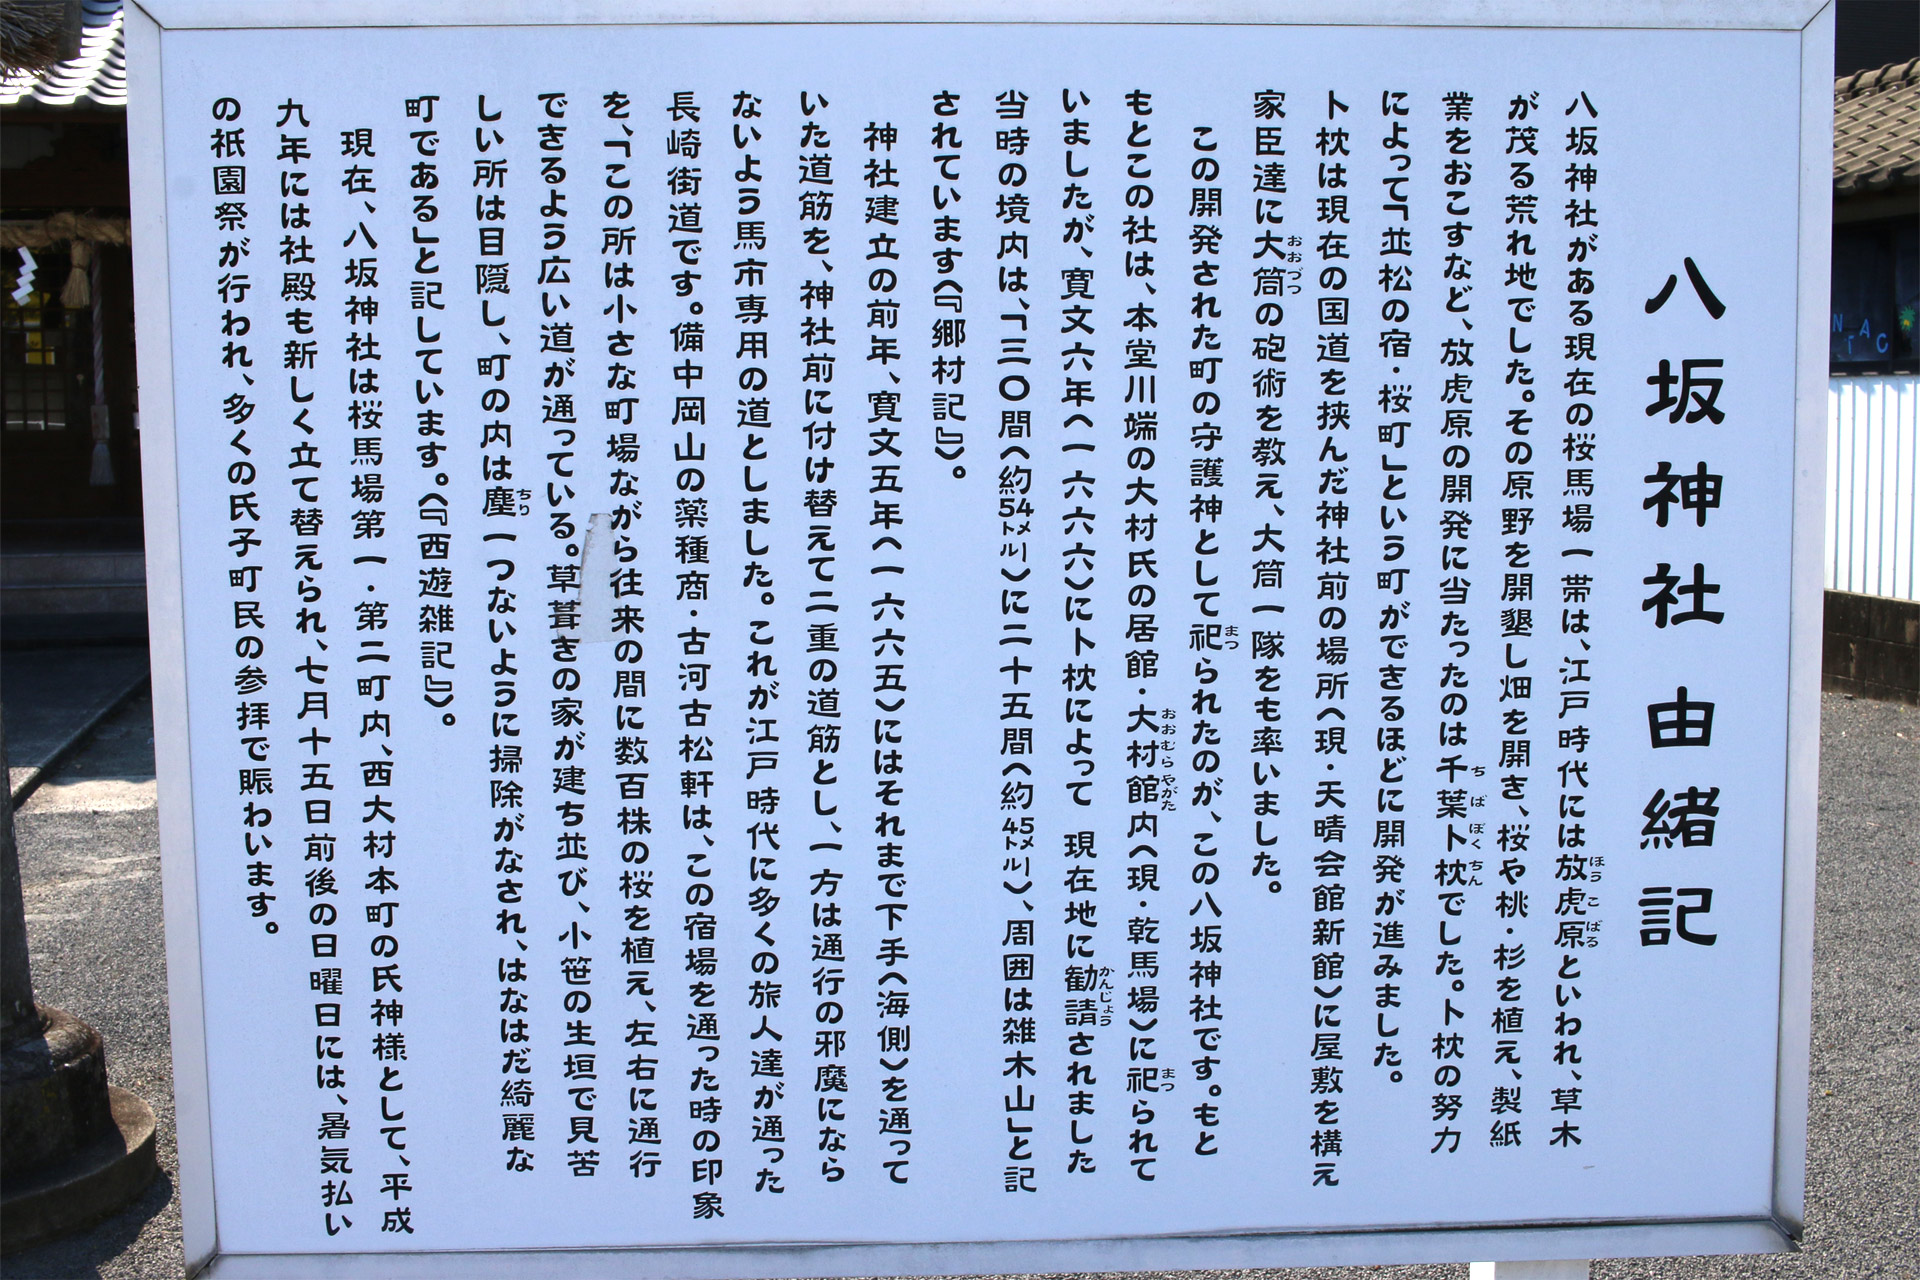 八坂神社 由緒記
八坂神社がある現在の桜馬場一帯は、江戸時代には放虎原といわれ、草木
が茂る荒れ地でした。その原野を開墾し畑を開き、桜や桃・杉を植え、製紙
業をおこすなど、放虎原の開発に当たったのは千葉卜枕でした。卜枕の努力
によって「並松の宿・桜町」という町ができるほどに開発が進みました。
卜枕は現在の国道を挟んだ神社前の場所(現・天晴会館新館)に屋敷を構え
家臣達に大筒の砲術を教え、大筒一隊をも率いました。
この開発された町の守護神として祀られたのが、この八坂神社です。もと
もとこの社は、本堂川端の大村氏の居館・大村館内(現・乾馬場)に祀られて
いましたが、寛文六年(一六六六)に卜枕によって 現在地に勧請されました
当時の境内は、「三〇間(約54メートル)に二十五間(約45メートル)、周囲は雑木山」と記
されています(『郷村記』)。
神社建立の前年、寛文五年(一六六五)にはそれまで下手(海側)を通って
いた道筋を、神社前に付け替えて二重の道筋とし、一方は通行の邪魔になら
ないよう馬市専用の道としました。これが江戸時代に多くの旅人達が通った
長崎街道です。備中岡山の薬種商・古河古松軒は、この宿場を通った時の印象
を、「この所は小さな町場ながら往来の間に数百株の桜を植え、左右に通行
できるよう広い道が通っている。草葺きの家が建ち並び、小笹の生垣で見苦
しい所は目隠し、町の内は塵一つないように掃除がなされ、はなはだ綺麗な
町である」と記しています。(『西遊雑記』)。
現在、八坂神社は桜馬場第一・第二町内、西大村本町の氏神様として、平成
九年には社殿も新しく立て替えられ、七月十五日前後の日曜日には、暑気払い
の祇園祭が行われ、多くの氏子町民の参拝で賑わいます。